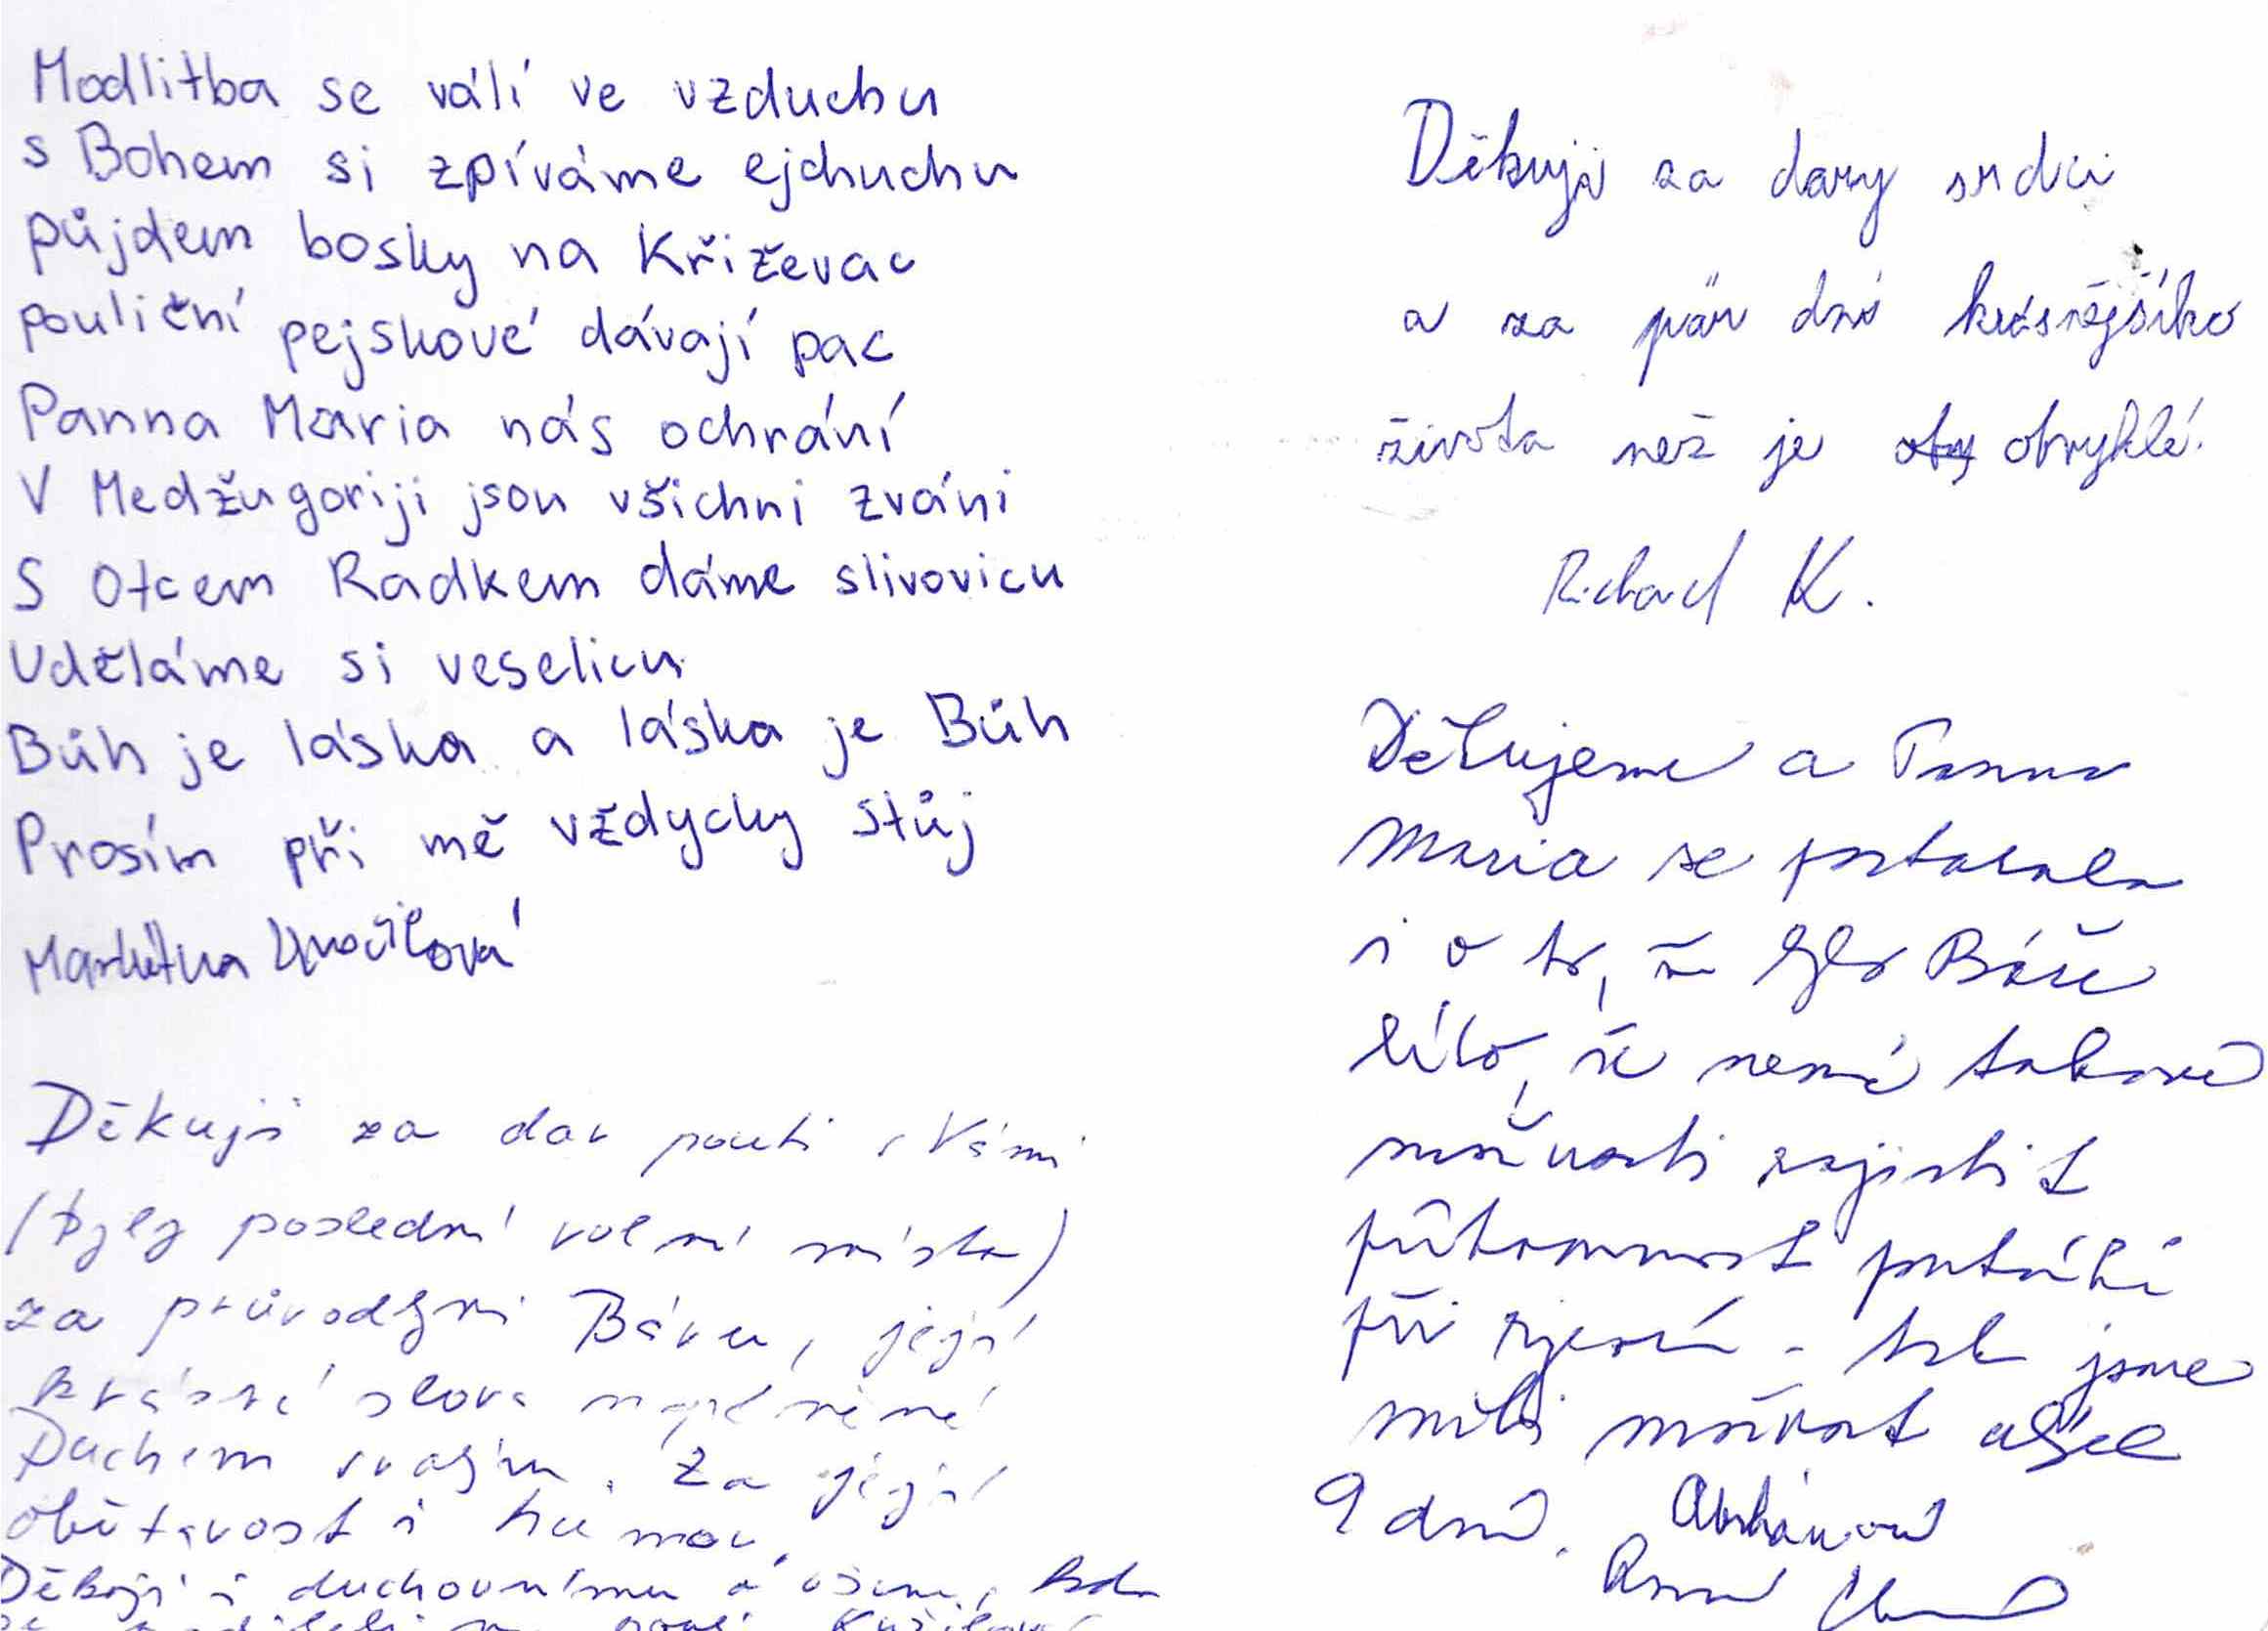 Modlitba se válí ve vzduchu
s Bohem si zpíváme ejchuchu
půjdem bosky na Křiževac
pouliční pejskové dávají pac
Panna Maria nás ochrání
V Medžugoriji jsou všichni zváni
S Otcem Radkem dáme slivovicu
Uděláme si veselicu
Bůh je láska a láska je Bůh
Prosím při mě vždycky stůj
Markétka
Děkuji za dar pouti s Vámi
(byly poslední volná místa)
za průvodkyni Báru, její
krásná slova naplněné
Duchem svatým. Za její
obětavost i humor.
Děkuji i duchovnímu a všem, kdo
se podíleli na pouti
Děkuji za dary srdci
a za pár dní krásnějšího
života než je obvyklé.
Richard K.
Děkujeme a Panna
Maria se postarala
i o to, že Báře
líto, že nemá takové
možnosti zajistit
přítomnost putníků
při zjevení - tak jsme
měli možnost
9 dní.